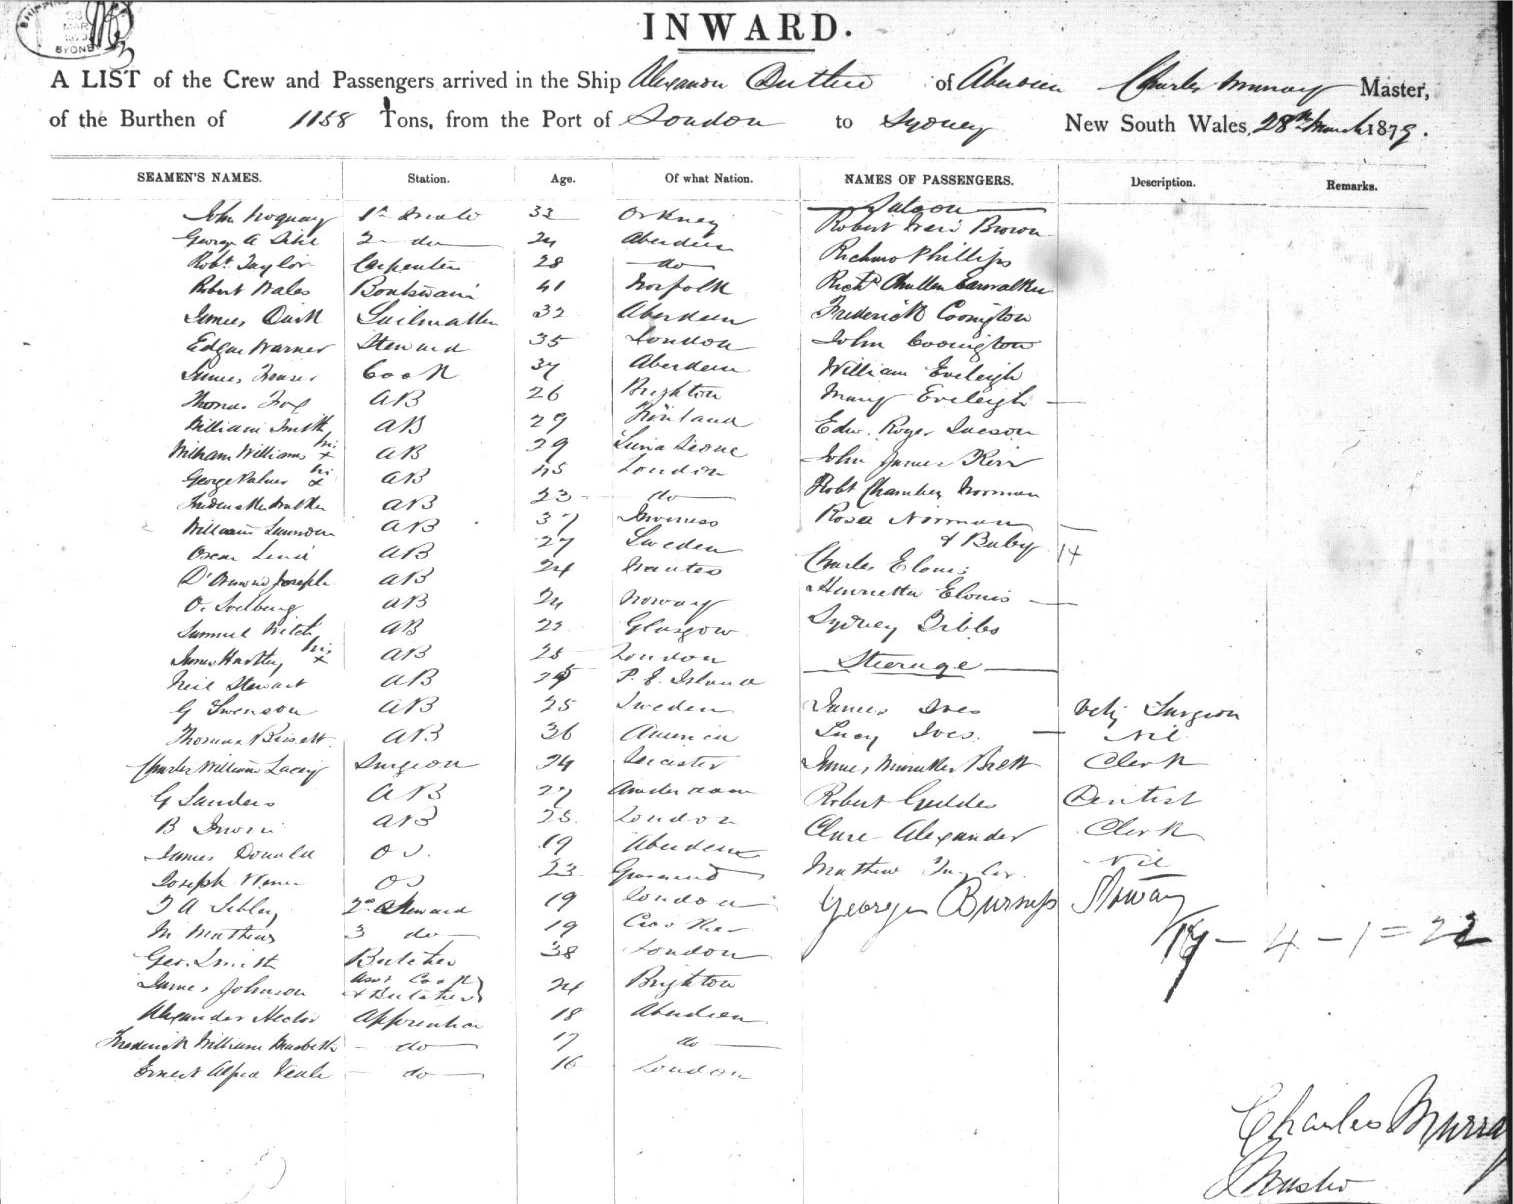 SHIPPING
28 MAR 1879
SYDNEY
INWARD.
A LIST of the Crew and Passengers arrived in the Ship Alexander Duthie of Aberdeen Charles Murray Master,
of the Burthen of 1158 Tons, from the Port of London to Sydney New South Wales, 28th March 1879.
SEAMEN'S NAMES. Station. Age. Of what Nation. NAMES OF PASSENGERS. Description. Remarks.
Saloon
John 1st Mate 33 Orkney Robert Brown
George A 2 do 24 Aberdeen Phillips
Robt Taylor Carpenter 28 do Richd
Robert Wales Boatswain 41 Norfolk Frederick Covington
James Sailmaker 32 Aberdeen John Covington
Edgar Warner Steward 35 London William Eveleigh
James Fraser Cook 37 Aberdeen Mary Eveleigh
Thomas Fox AB 26 Brighton Edw. Roger
William Smith AB 29 Finland John James Kerr
William Williams his x AB 29 Robt Norman
George Palmer his x AB 45 London Rosa Norman
AB 23 do & Baby 14
William AB 37 Inverness Charles Elouis
Oscar AB 27 Sweden Henrietta Elouis
Joseph AB 24 Nantes Sydney Gibbs
O. Solberg AB 24 Norway Steerage
Samuel AB 22 Glasgow James Ives Vety Surgeon
James Hartley his x AB 25 London Lucy Ives. Nil
Neil Stewart AB P. E. Island James Brett Clerk
G Swenson AB 25 Sweden Robert Geddes Dentist
Thomas Bissett AB 36 America Alexander Clerk
Charles William Lacey Surgeon 24 Leicester Mathew Taylor Nil
G Sanders AB 27 Amsterdam George Stoway
B AB 25 London 17 - 4 - 1 = 22
James Donald OS. 19 Aberdeen
Joseph OS 23
T A Sibley 2nd Steward 19 London
Mathews 3 do 19
Geo. Smith Butcher 38 London
James Johnson Asst Cook & Butcher 24 Brighton
Alexander Hector Apprentice 18 Aberdeen
Frederick William do 17 do
Ernest Alfred Veale do 16 London
Charles Murray
Master